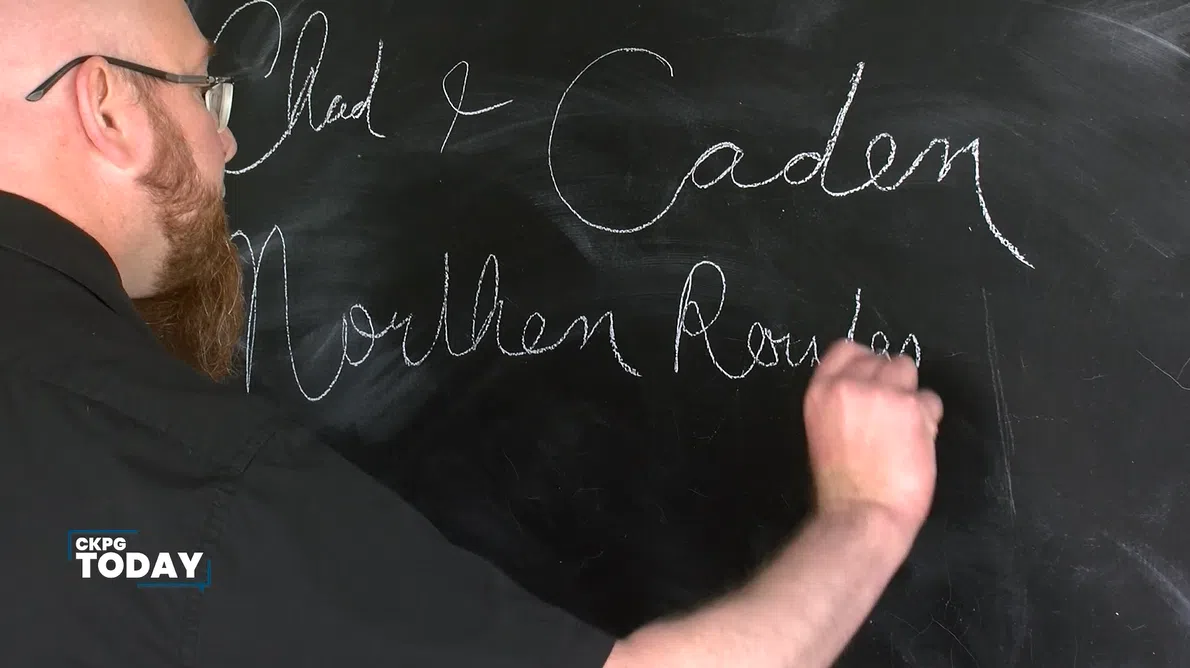 Chad & Caden
Northen Routes
CKPG
TODAY